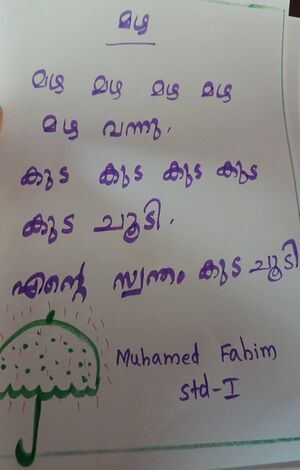 മഴ
മഴ മഴ മഴ മഴ
മഴ വന്നു.
കുട കുട കുട കുട
കുട ചൂടി.
എന്റെ സ്വന്തം കുട ചൂടി
Muhamed Fahim
std-I